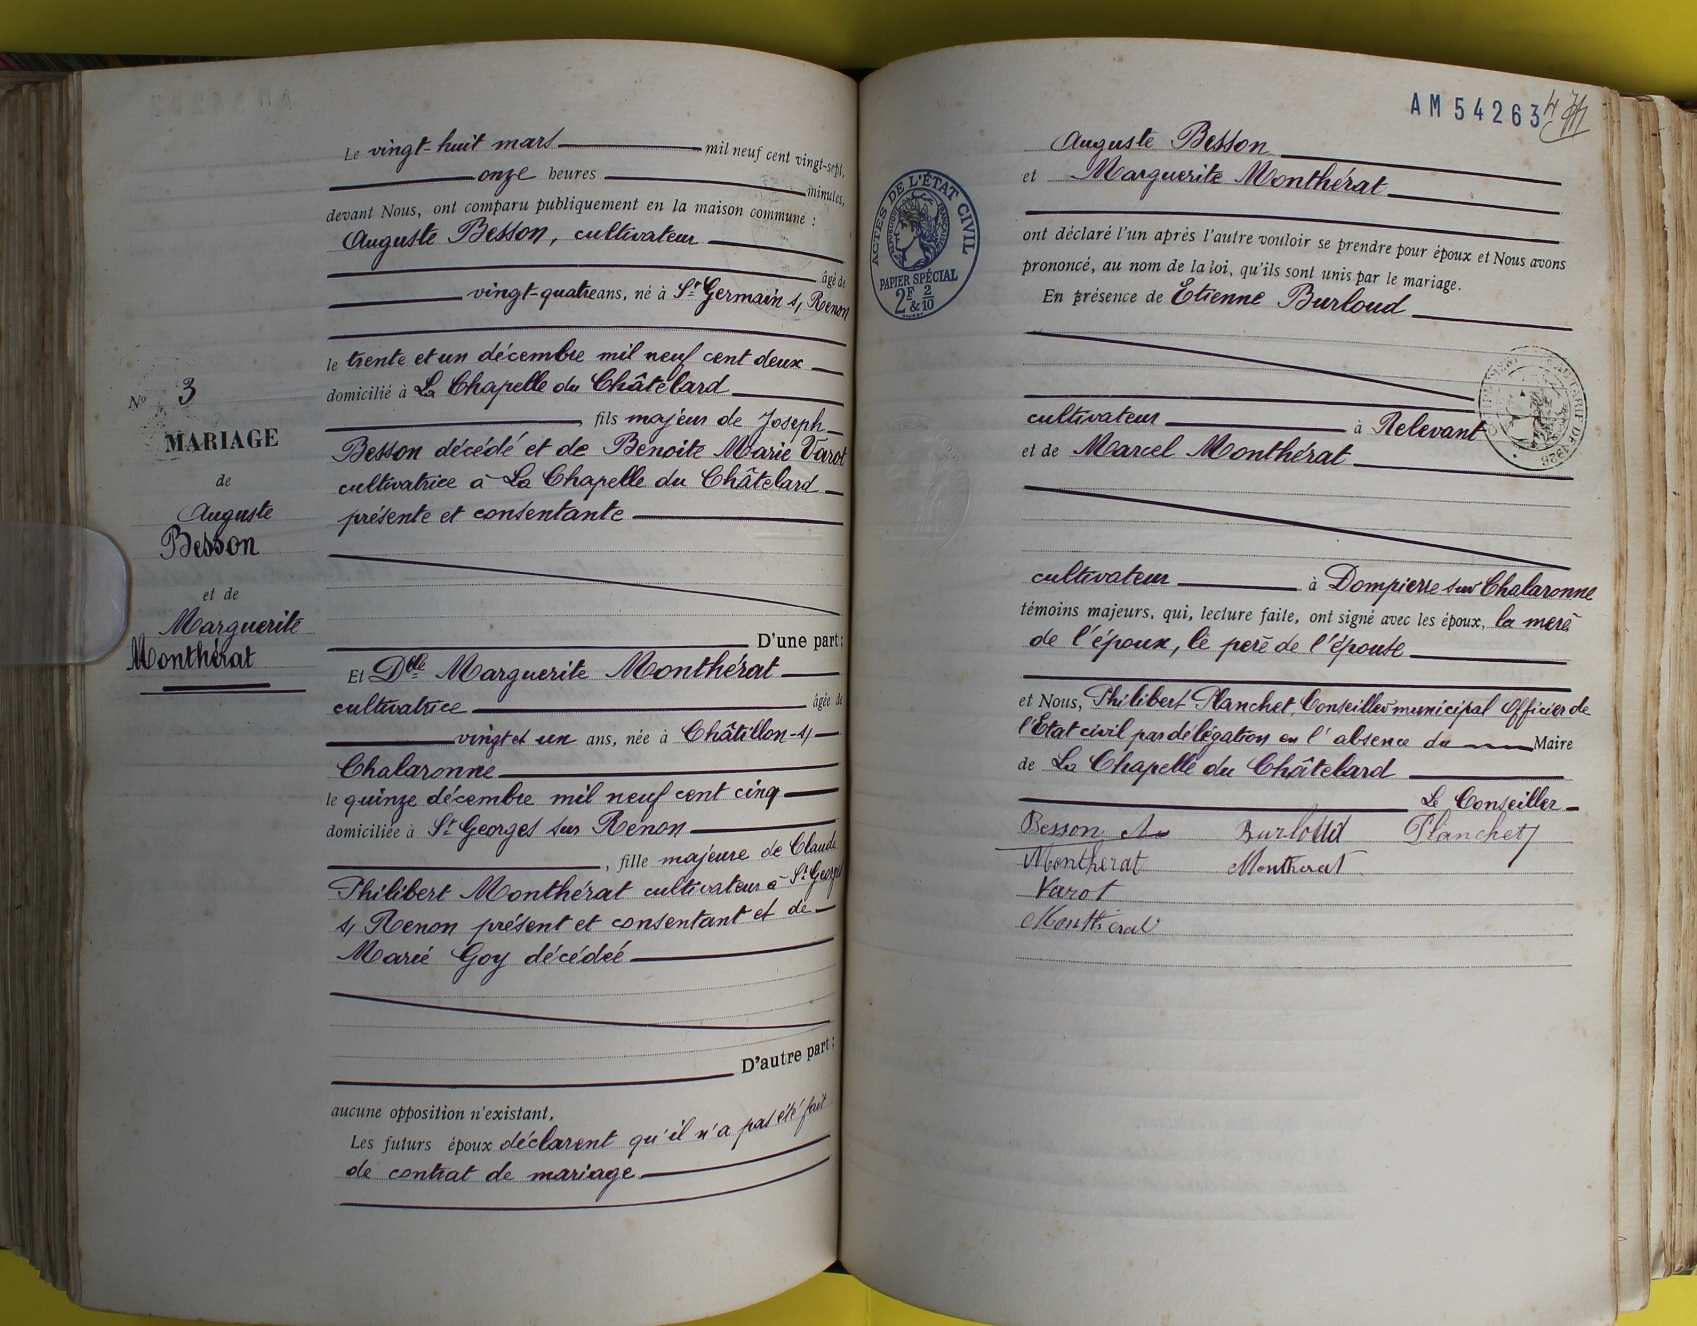 Le vingt-huit mars mil neuf cent vingt-sept,
onze heures minutes,
devant Nous, ont comparu publiquement en la maison commune :
Auguste Besson, cultivateur
âgé de
vingt-quatre ans, né à St Germain s/ Renon
le trente et un décembre mil neuf cent deux
domicilié à La Chapelle du Châtelard
fils majeur de Joseph
Besson décédé et de Benoite Marie Varot
cultivatrice à La Chapelle du Châtelard
présente et consentante
D'une part :
Et Dlle Marguerite Monthérat
cultivatrice âgée de
vingt et un ans, née à Châtillon-s/
Chalaronne
le quinze décembre mil neuf cent cinq
domiciliée à St Georges sur Renon
, fille majeure de Claude
Philibert Monthérat cultivateur à St Georges
s/ Renon présent et consentant et de
Marie Goy décédée
D'autre part :
aucune opposition n'existant,
Les futurs époux déclarent qu'il n'a pas été fait
de contrat de mariage
No 3
MARIAGE
de
Auguste
Besson
et de
Marguerite
Monthérat
AM 54263
Auguste Besson
et Marguerite Monthérat
ont déclaré l'un après l'autre vouloir se prendre pour époux et Nous avons
prononcé, au nom de la loi, qu'ils sont unis par le mariage.
En présence de Etienne Burloud
cultivateur à Relevant
et de Marcel Monthérat
cultivateur à Dompierre sur Chalaronne
témoins majeurs, qui, lecture faite, ont signé avec les époux, la mère
de l'époux, le père de l'épouse
et Nous, Philibert Planchet, Conseiller municipal Officier de
l'Etat civil par délégation en l'absence du Maire
de La Chapelle du Châtelard
Le Conseiller
Besson Burloud Planchet
Montherat Montherat
Varot
Montherat
ACTES DE L'ÉTAT CIVIL
PAPIER SPÉCIAL
2F & 2/10